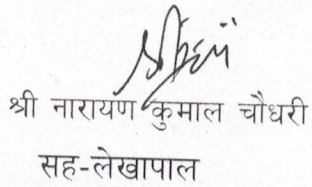 श्री नारायण कुमाल चौधरी
सह-लेखापाल